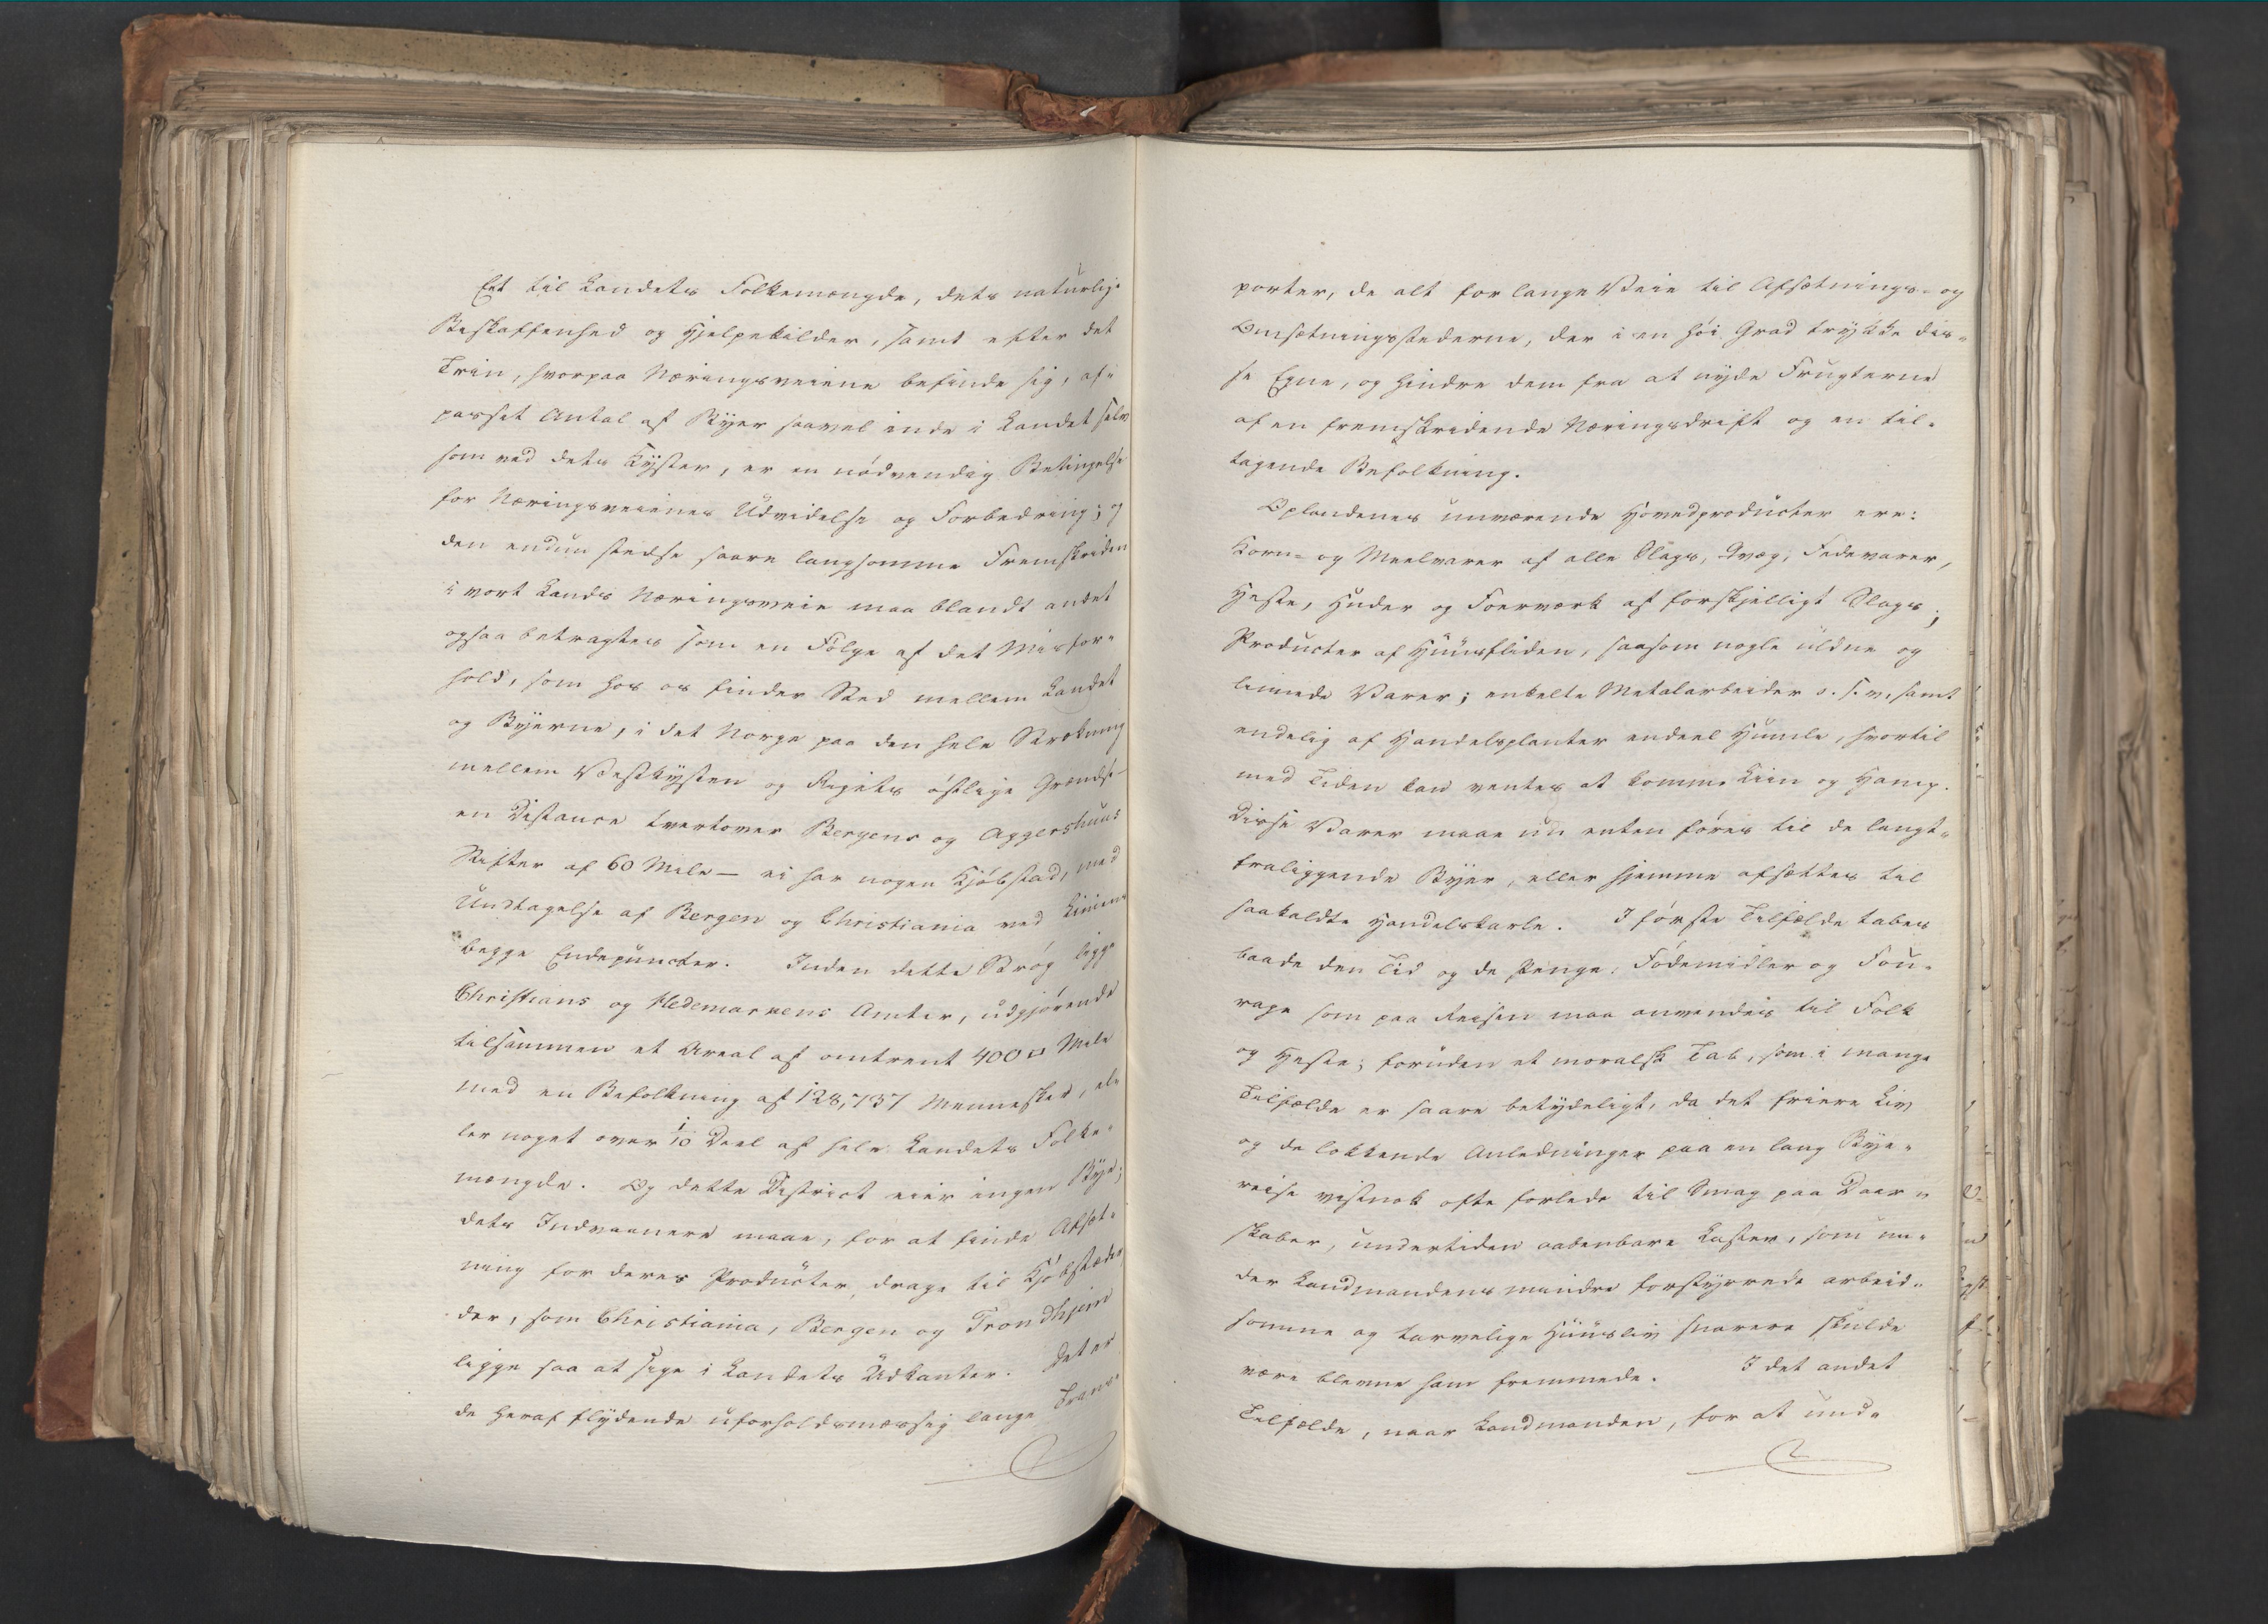 Eet til Landets Folkemængde, dets naturlige
Beskaffenhed og Hjelpekilder, samt efter det
Trin, hvorpaa Næringsveiene befinde sig, af-
passet Antal af Byer saavel inde i Landet selv
som ved dets Kyster, er en nödvendig Betingelse
for Næringsveienes Udvidelse og Forbedring; og
den endnu stedse saare langsomme Fremskriden
i vort Lands Næringsveie maa blandt andet
ogsaa betragtes som en Fölge af det Misfor-
hold, som hos os finder Sted mellem Landet
og Byerne, i det Norge paa den hele Strækning
mellem Vestkysten og Rigets östlige Grændse
en Distance tvertover Bergens og Aggershuus
Stifter af 60 Mile — ei har nogen Kjöbstad, med
Undtagelse af Bergen og Christiania ved Liniens
begge Endepuncter. Inden dette Strög ligge
Christians og Hedemarkens Amter, udgjörende
tilsammen et Areal af omtrent 400 □ Mile
med en Befolkning af 128,737 Mennesker, el-
ler noget over 1/10 Deel af hele Landets Folke-
mængde. Og dette District eier ingen Bye;
dets Indvaanere maae, for at finde Afsæt-
ning for deres Producter, drage til Kjöbstæder
der, som Christiania, Bergen og Trondhjem
ligge saa at sige i Landets Udkanter. Det er
de heraf flydende uforholdsmæssig lange Trans-
porter, de alt for lange Veie til Afsætnings- og
Omsætningsstederne, der i en höi Grad trykke dis-
se Egne, og hindre dem fra at nyde Frugterne
af en fremskridende Næringsdrift og en til-
tagende Befolkning.
Oplandenes nuværende Hovedproducter ere:
Korn- og Meelvarer af alle Slags, Qvæg, Fedevarer,
Heste, Huder og Foerværk af forskjelligt Slags;
Producter af Huusfliden, saasom nogle uldne og
linnede Varer; enkelte Metalarbeider o. s. v. samt
endelig af Handelsplanter endeel Humle, hvortil
med Tiden kan ventes at komme Liin og Hamp.
Disse Varer maae nu enten föres til de langt-
fraliggende Byer, eller hjemme afsættes til
saakaldte Handelskarle. I förste Tilfælde tabes
baade den Tid og de Penge, Födemidler og Fou-
rage som paa Reisen maa anvendes til Folk
og Heste; foruden et moralsk Tab, som i mange
Tilfælde er saare betydeligt, da det friere Liv
og de lokkende Anledninger paa en lang Bye-
reise vistnok ofte forlede til Smag paa Daar-
skaber, undertiden aabenbare Laster, som un-
der Landmandens mindre forstyrrede arbeid-
somme og tarvelige Huusliv snarere skulde
være blevne ham fremmede. I det andet
Tilfælde, naar Landmanden, for at und-